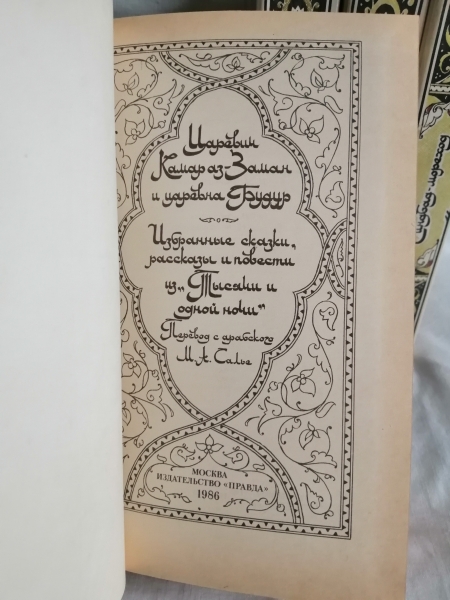 Царевич
Камар аз-Заман
и царевна Будур
Избранные сказки,
рассказы и повести
из „Тысячи и
одной ночи“
Перевод с арабского
М. А. Салье
МОСКВА
ИЗДАТЕЛЬСТВО «ПРАВДА»
1986
Синдбад-мореход